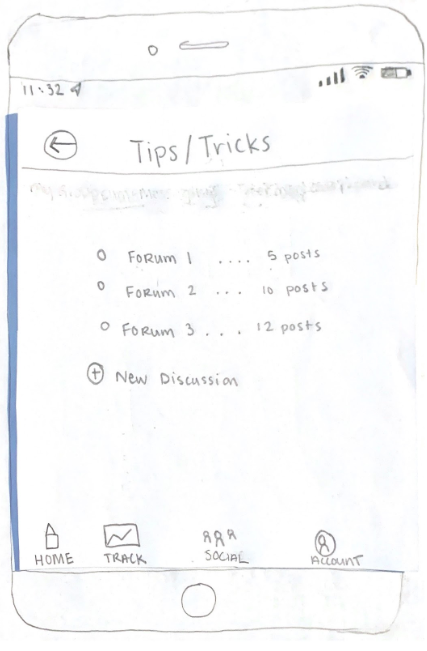 11:32
Tips/Tricks
Forum 1 .... 5 posts
Forum 2 ... 10 posts
Forum 3 ... 12 posts
New Discussion
HOME TRACK SOCIAL ACCOUNT